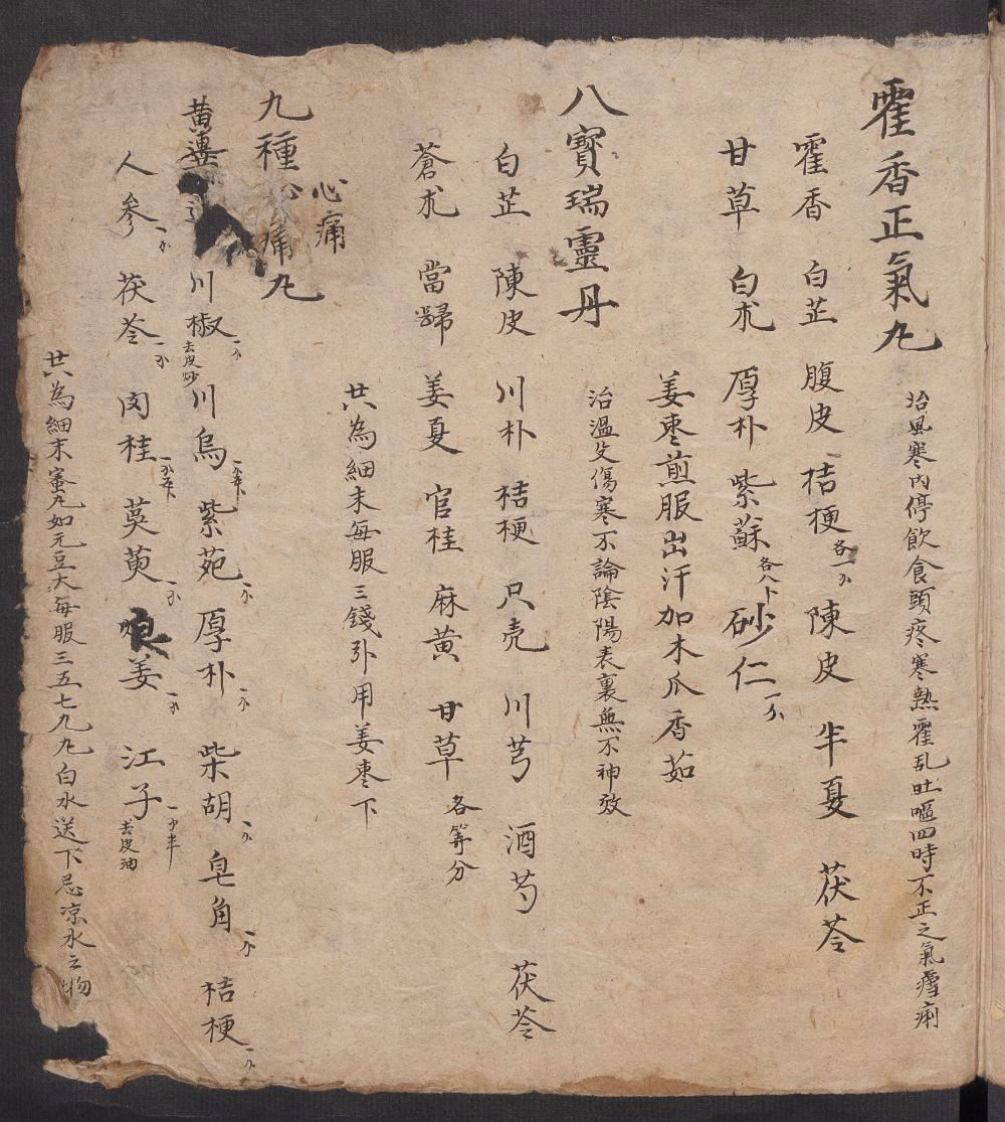 霍香正氣丸
治風寒內停飲食頭疼寒熱霍乱吐嘔四時不正之氣瘧痢
霍香 白芷 腹皮 桔梗各一分 陳皮 半夏 茯苓
甘草 白朮 厚朴 紫蘇各八卜 砂仁一分
姜枣煎服出汗加木瓜香茹
八寶瑞靈丹
治溫伤寒不論陰陽表裏無不神效
白芷 陳皮 川朴 桔梗 只壳 川芎 酒芍 茯苓
蒼朮 當歸 姜夏 官桂 麻黃 甘草 各等分
共為細末每服三錢引用姜枣下
九種心痛丸
心痛
黄連 川椒去皮炒一分 川烏 紫苑一分 厚朴一分 柴胡一分 皂角一分 桔梗一分
人參一分 茯苓一分 肉桂 萸萸一分 良姜一分 江子去皮油
共為細末蜜丸如元豆大每服三五七九丸白水送下忌凉水之物